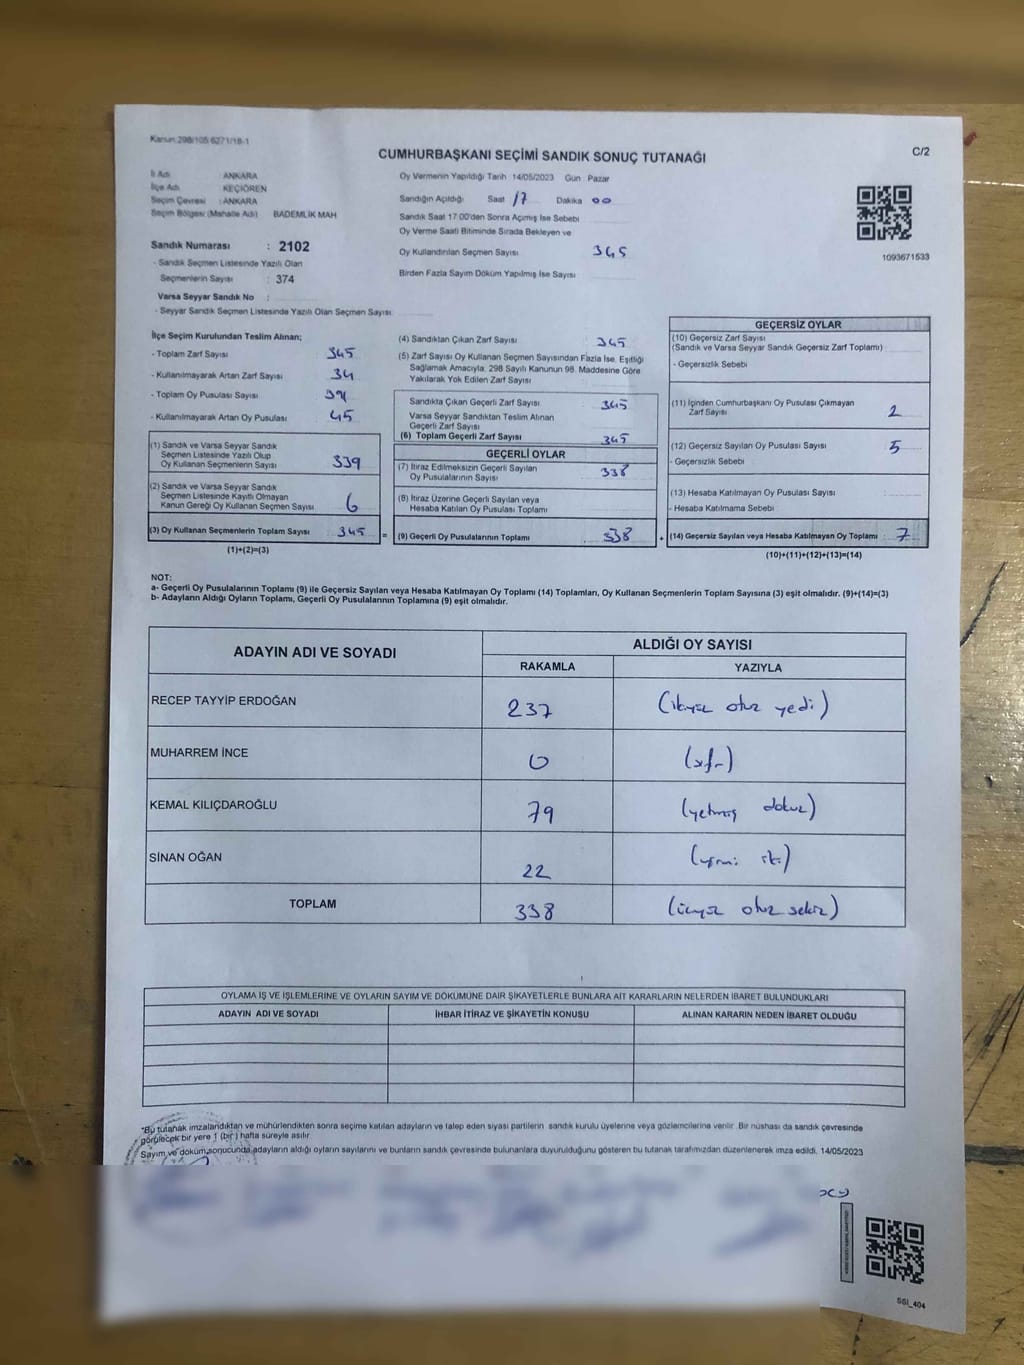 Kanun:298/105 6271/18-1
CUMHURBAŞKANI SEÇİMİ SANDIK SONUÇ TUTANAĞI
C/2
İl Adı ANKARA
İlçe Adı KEÇİÖREN
Seçim Çevresi : ANKARA
Seçim Bölgesi (Mahalle Adı) BADEMLİK MAH
Sandık Numarası : 2102
- Sandık Seçmen Listesinde Yazılı Olan
Seçmenlerin Sayısı : 374
Varsa Seyyar Sandık No :
- Seyyar Sandık Seçmen Listesinde Yazılı Olan Seçmen Sayısı
Oy Vermenin Yapıldığı Tarih 14/05/2023 Gün : Pazar
Sandığın Açıldığı Saat 17 Dakika 00
Sandık Saat 17:00'den Sonra Açımış İse Sebebi
Oy Verme Saati Bitiminde Sırada Bekleyen ve
Oy Kullandırılan Seçmen Sayısı 345
Birden Fazla Sayım Döküm Yapılmış İse Sayısı
1093671533
İlçe Seçim Kurulundan Teslim Alınan;
- Toplam Zarf Sayısı 345
- Kullanılmayarak Artan Zarf Sayısı 34
- Toplam Oy Pusulası Sayısı
- Kullanılmayarak Artan Oy Pusulası 45
(1) Sandık ve Varsa Seyyar Sandık
Seçmen Listesinde Yazılı Olup
Oy Kullanan Seçmenlerin Sayısı 339
(2) Sandık ve Varsa Seyyar Sandık
Seçmen Listesinde Kayıtlı Olmayan
Kanun Gereği Oy Kullanan Seçmen Sayısı 6
(3) Oy Kullanan Seçmenlerin Toplam Sayısı 345 =
(1)+(2)=(3)
(4) Sandıktan Çıkan Zarf Sayısı 345
(5) Zarf Sayısı Oy Kullanan Seçmen Sayısından Fazla İse, Eşitliği
Sağlamak Amacıyla, 298 Sayılı Kanunun 98. Maddesine Göre
Yakılarak Yok Edilen Zarf Sayısı
Sandıkta Çıkan Geçerli Zarf Sayısı 345
Varsa Seyyar Sandıktan Teslim Alınan
Geçerli Zarf Sayısı
(6) Toplam Geçerli Zarf Sayısı 345
GEÇERLİ OYLAR
(7) İtiraz Edilmeksizin Geçerli Sayılan
Oy Pusulalarının Sayısı 338
(8) İtiraz Üzerine Geçerli Sayılan veya
Hesaba Katılan Oy Pusulası Toplamı
(9) Geçerli Oy Pusulalarının Toplamı 338 +
GEÇERSİZ OYLAR
(10) Geçersiz Zarf Sayısı
(Sandık ve Varsa Seyyar Sandık Geçersiz Zarf Toplamı)
- Geçersizlik Sebebi
(11) İçinden Cumhurbaşkanı Oy Pusulası Çıkmayan
Zarf Sayısı 2
(12) Geçersiz Sayılan Oy Pusulası Sayısı 5
- Geçersizlik Sebebi
(13) Hesaba Katılmayan Oy Pusulası Sayısı
- Hesaba Katılmama Sebebi
(14) Geçersiz Sayılan veya Hesaba Katılmayan Oy Toplamı 7
(10)+(11)+(12)+(13)=(14)
NOT:
a- Geçerli Oy Pusulalarının Toplamı (9) ile Geçersiz Sayılan veya Hesaba Katılmayan Oy Toplamı (14) Toplamları, Oy Kullanan Seçmenlerin Toplam Sayısına (3) eşit olmalıdır. (9)+(14)=(3)
b- Adayların Aldığı Oyların Toplamı, Geçerli Oy Pusulalarının Toplamına (9) eşit olmalıdır.
ADAYIN ADI VE SOYADI
ALDIĞI OY SAYISI
RAKAMLA YAZIYLA
RECEP TAYYİP ERDOĞAN 237 (ikiyüz otuz yedi)
MUHARREM İNCE 0 (sıfır)
KEMAL KILIÇDAROĞLU 79 (yetmiş dokuz)
SİNAN OĞAN 22 (yirmi iki)
TOPLAM 338 (üçyüz otuz sekiz)
OYLAMA İŞ VE İŞLEMLERİNE VE OYLARIN SAYIM VE DÖKÜMÜNE DAİR ŞİKAYETLERLE BUNLARA AİT KARARLARIN NELERDEN İBARET BULUNDUKLARI
ADAYIN ADI VE SOYADI İHBAR İTİRAZ VE ŞİKAYETİN KONUSU ALINAN KARARIN NEDEN İBARET OLDUĞU
*Bu tutanak imzalandıktan ve mühürlendikten sonra seçime katılan adayların ve talep eden siyasi partilerin sandık kurulu üyelerine veya gözlemcilerine verilir. Bir nüshası da sandık çevresinde
görülecek bir yere 1 (bir) hafta süreyle asılır.
Sayım ve döküm sonucunda adayların aldığı oyların sayılarını ve bunların sandık çevresinde bulunanlara duyurulduğunu gösteren bu tutanak tarafımızdan düzenlenerek imza edildi. 14/05/2023
SSİ_404